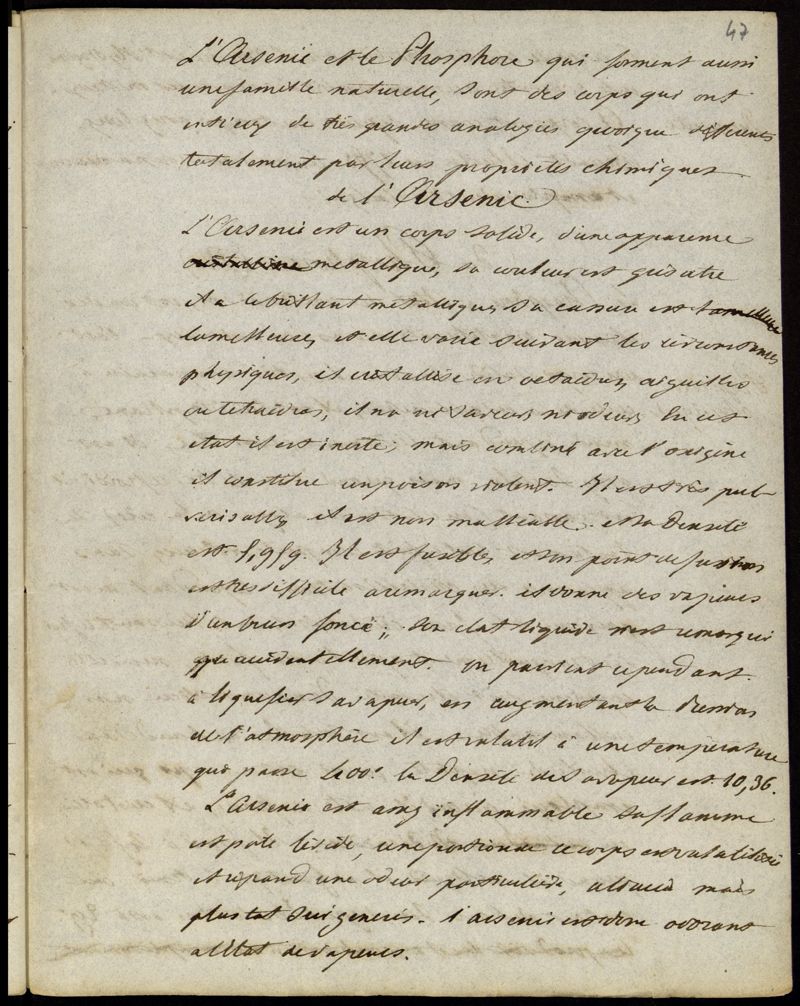 47
L'Arsenic et le Phosphore qui forment aussi
une famille naturelle, sont des corps qui ont
entr'eux de très grandes analogies quoique différents
totalement par leurs propriétés chimiques
de l'Arsenic.
L'Arsenic est un corps solide, d'une apparence
métallique, sa couleur est grisatre
il a le brillant métallique, sa cassure est lamelleuse
lamelleuse, et elle varie suivant les circonstances
physiques, il cristallise en octaèdres, aiguilles
ou tetraèdres, il n'a ni saveur ni odeur, En cet
état il est inerte; mais combiné avec l'oxigène
il constitue un poison violent. Il est très pul-
vérisable, il est non malléable. et sa densité
est 5,959. Il est fusible, et son point de fusion
est très difficile a remarquer. il donne des vapeurs
d'un brun foncé; son état liquide n'est remarqué
que accidentellement. on parvient cependant
à liquefier sa vapeur, en augmentant la pression
de l'atmosphère il est volatil à une température
qui passe 400°. la Densité de sa vapeur est 10,36.
L'Arsenic est assez inflammable sa flamme
est pale livide, une portion de ce corps est volatilisée
et répand une odeur particulière, alliacée mais
plus tot sui generis. l'arsenic est donc odorant
a l'état de vapeurs.